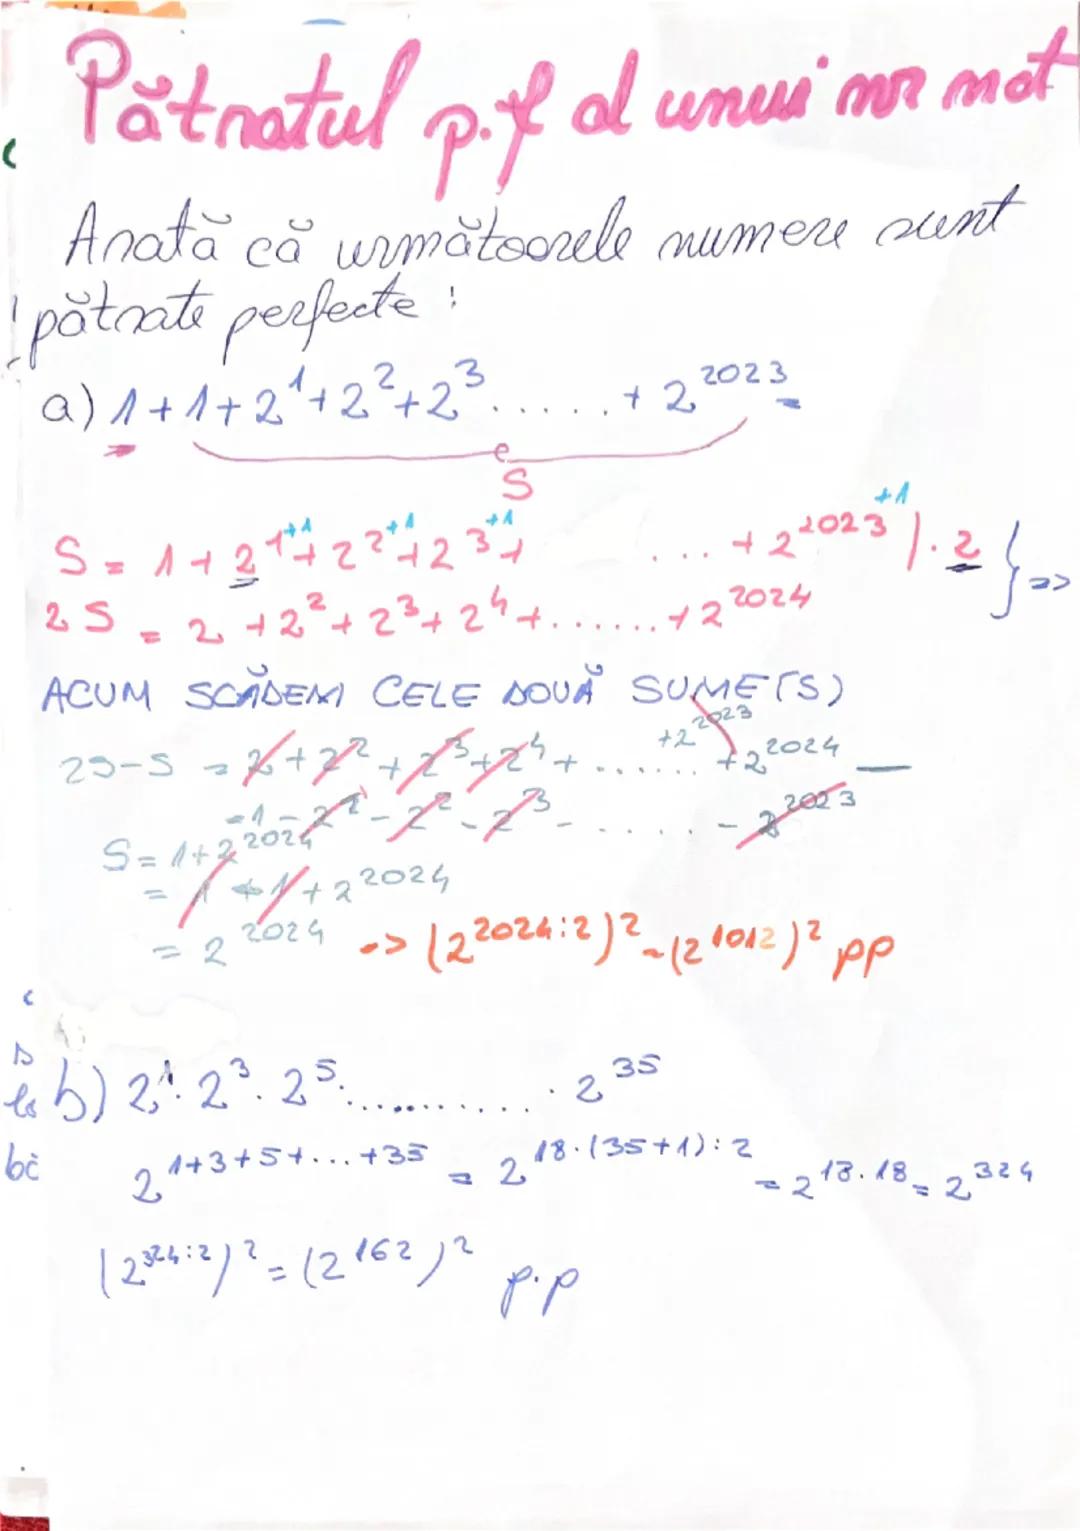 Pătratul p.f al unui nr nat
Arată că următoarele numere sunt
pătrate perfecte :
a) 1+1+2¹+2²+2³......+2²⁰²³=
S
S = 1+2¹⁺¹+2²⁺¹+2³⁺¹+ ...+2²⁰²³⁺¹ |·2 } =>
2S = 2+2²+2³+2⁴+.......+2²⁰²⁴
ACUM SCĂDEM CELE DOUĂ SUME(S)
2S-S = 2+2²+2³+2⁴+......+2²⁰²³+2²⁰²⁴ —
-1-2¹-2²-2³-.....-2²⁰²³
S=1+2²⁰²⁴
= 1+1+2²⁰²⁴
= 2²⁰²⁴ -> (2²⁰²⁴:²)²=(2¹⁰¹²)² pp
b) 2¹·2³·2⁵...........·2³⁵
2¹⁺³⁺⁵⁺···⁺³⁵ = 2¹⁸·⁽³⁵⁺¹⁾:² = 2¹⁸·¹⁸ = 2³²⁴
(2³²⁴:²)²=(2¹⁶²)² p.p